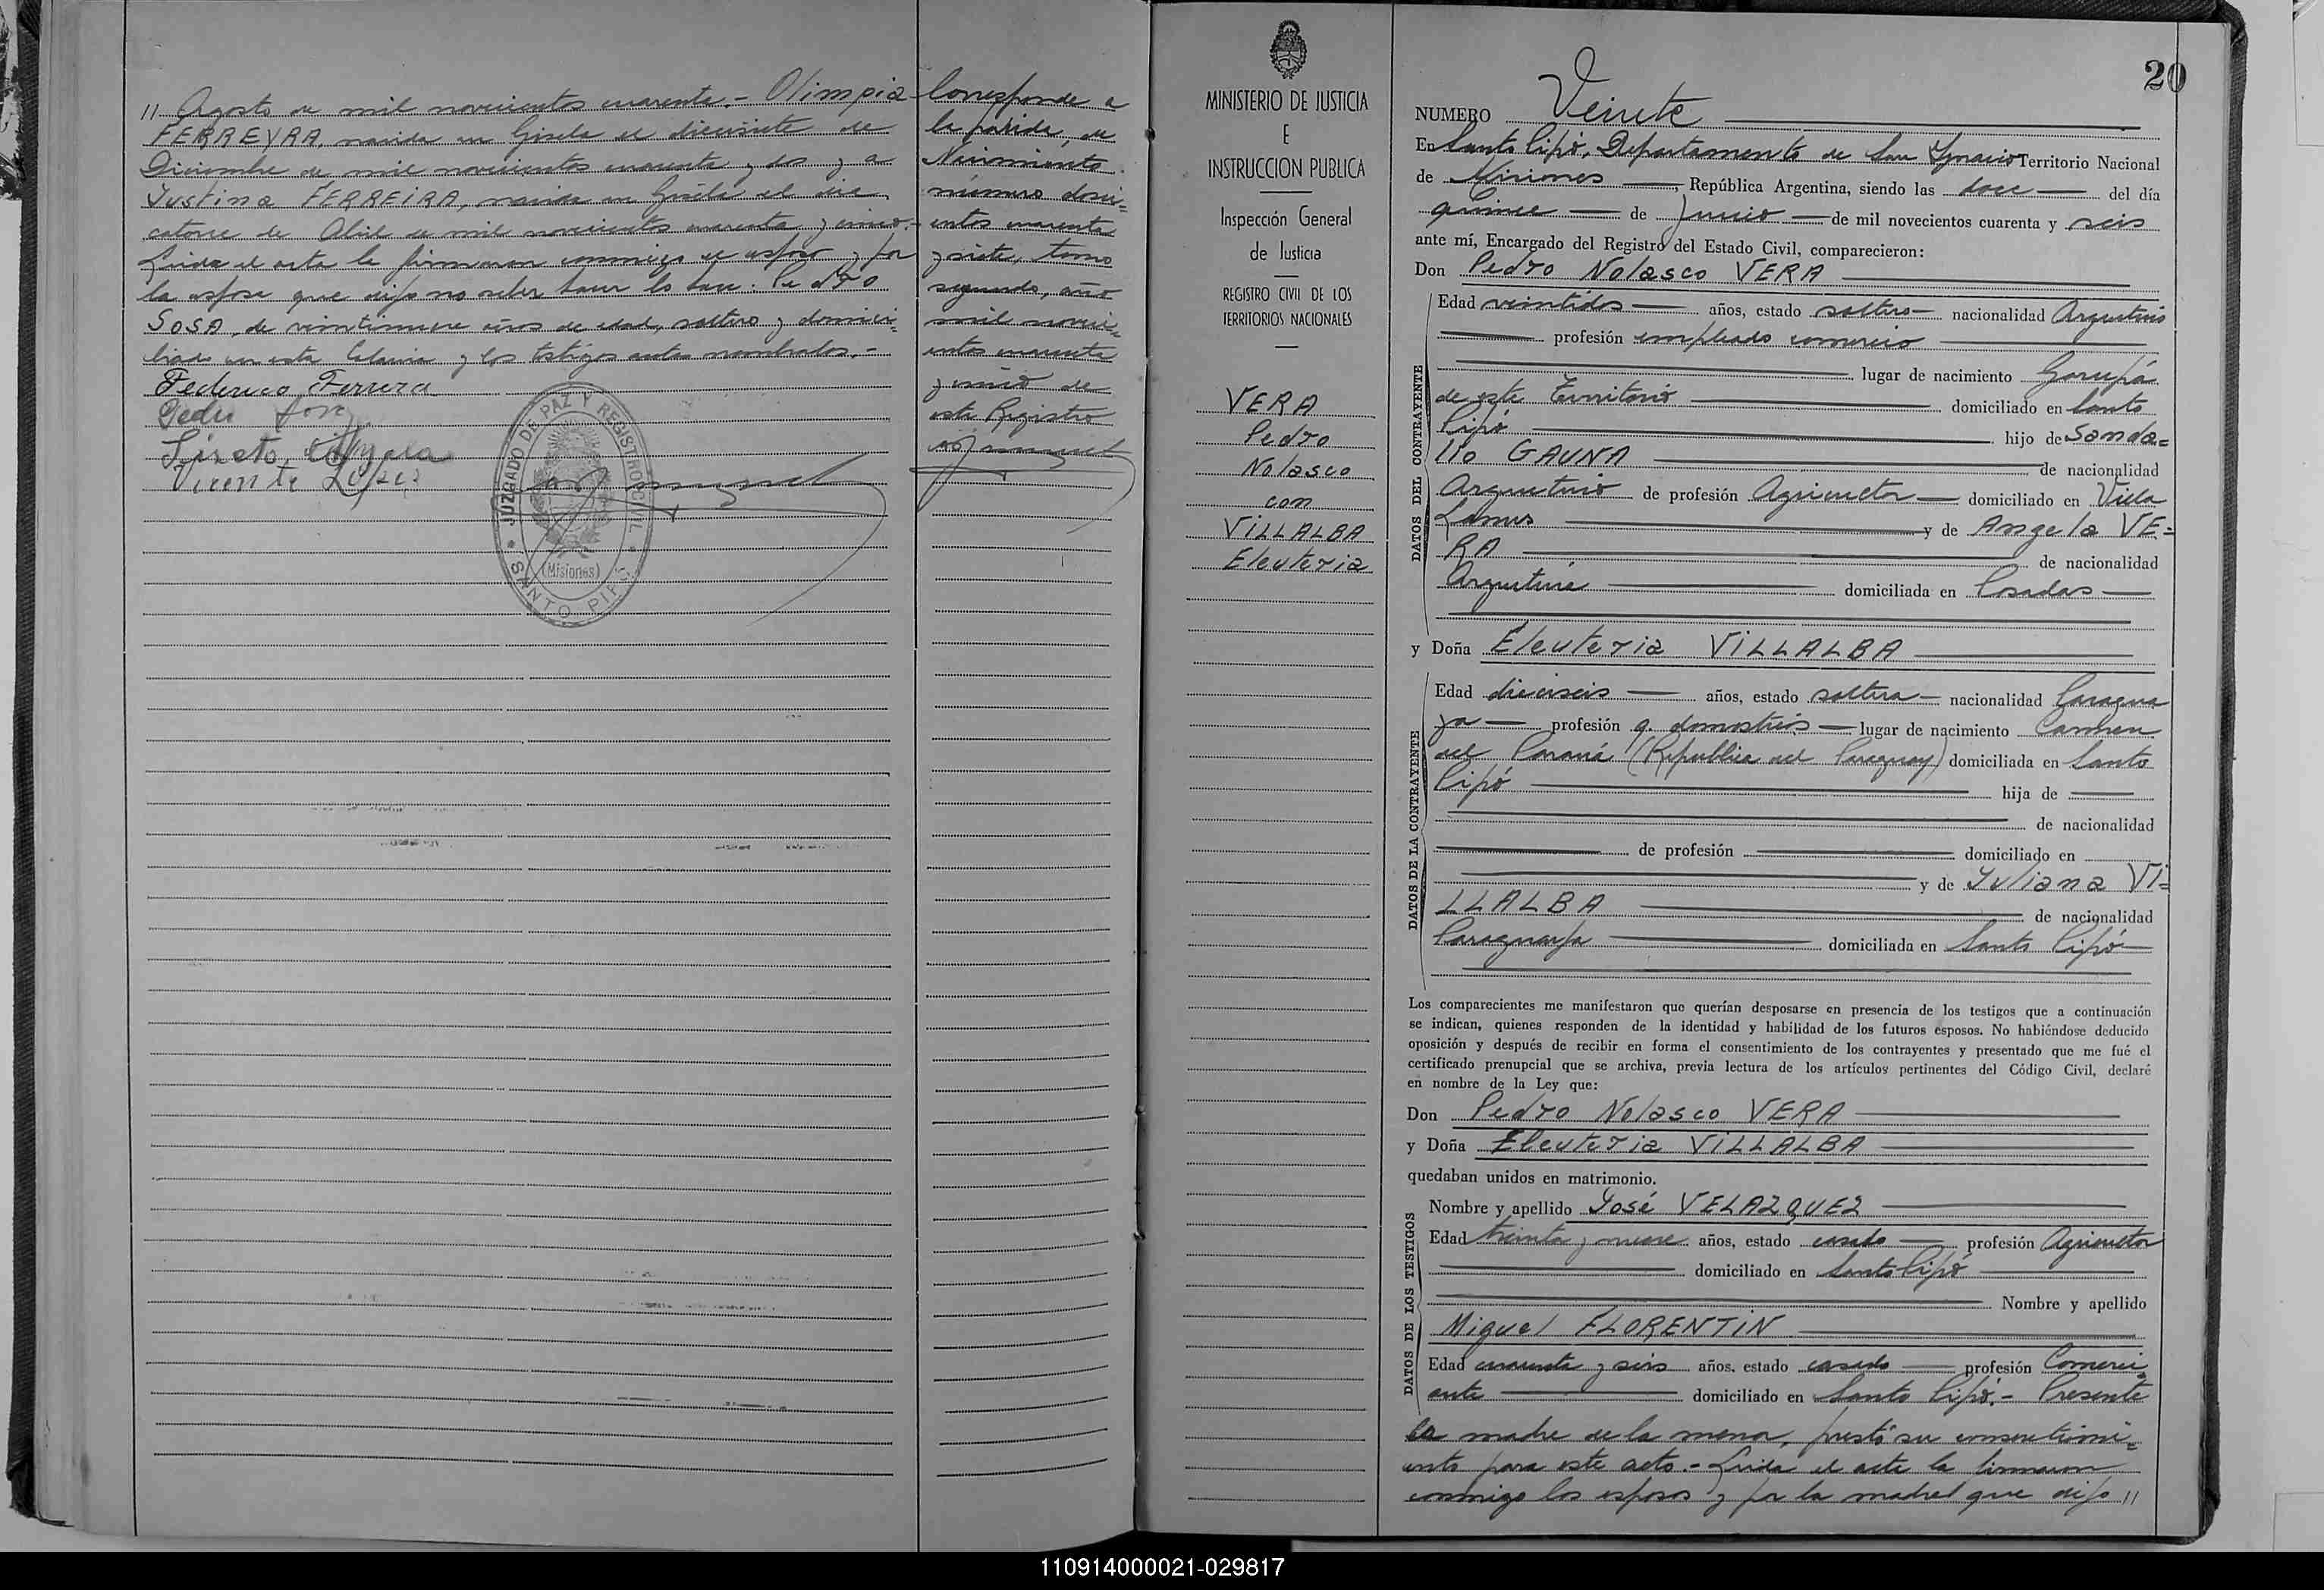 // Agosto de mil novecientos cuarenta.- Olimpia
FERREYRA, nacida en Gisela el diecisiete de
Diciembre de mil novecientos cuarenta y dos y a
Justina FERREIRA, nacida en Gisela el dia
catorce de Abril de mil novecientos cuarenta y cinco.-
Leida el acta la firmaron conmigo el esposo y por
la esposa que dijo no saber hacer lo hace: Pedro
SOSA, de veintinueve años de edad, soltero y domici=
liado en esta Colonia y los testigos antes nombrados.-
Federico Ferrera
Vicente Lopez
JUZGADO DE PAZ Y REGISTRO CIVIL
(Misiones)
SANTO PIPÓ
Corresponde a
la partida, de
Nacimiento
número dosci=
entos cuarenta
y siete, tomo
segundo, año
mil noveci=
entos cuarenta
y cinco de
este Registro
MINISTERIO DE JUSTICIA
E
INSTRUCCION PUBLICA
Inspección General
de Justicia
REGISTRO CIVIL DE LOS
TERRITORIOS NACIONALES
VERA
Pedro
Nolasco
con
VILLALBA
Eleuteria
20
NUMERO Veinte
En Santo Pipó, Departamento de San Ignacio Territorio Nacional
de Misiones, República Argentina, siendo las doce del día
quince de Junio de mil novecientos cuarenta y seis
ante mí, Encargado del Registro del Estado Civil, comparecieron:
Don Pedro Nolasco VERA
DATOS DEL CONTRAYENTE
Edad veintidos años, estado soltero nacionalidad Argentino
profesión empleado comercio
lugar de nacimiento Garupá
de este Territorio domiciliado en Santo
Pipó hijo de Sanda=
lio GAUNA de nacionalidad
Argentino de profesión Agricultor domiciliado en Villa
Lanus y de Angela VE=
RA de nacionalidad
Argentina domiciliada en Posadas
y Doña Eleuteria VILLALBA
DATOS DE LA CONTRAYENTE
Edad dieciseis años, estado soltera nacionalidad Paragua
ya profesión q. domesticos lugar de nacimiento Carmen
del Paraná (Republica del Paraguay) domiciliada en Santo
Pipó hija de
de nacionalidad
de profesión domiciliado en
y de Juliana VI=
LLALBA de nacionalidad
Paraguaya domiciliada en Santo Pipó
Los comparecientes me manifestaron que querían desposarse en presencia de los testigos que a continuación
se indican, quienes responden de la identidad y habilidad de los futuros esposos. No habiéndose deducido
oposición y después de recibir en forma el consentimiento de los contrayentes y presentado que me fué el
certificado prenupcial que se archiva, previa lectura de los artículos pertinentes del Código Civil, declaré
en nombre de la Ley que:
Don Pedro Nolasco VERA
y Doña Eleuteria VILLALBA
quedaban unidos en matrimonio.
DATOS DE LOS TESTIGOS
Nombre y apellido José VELAZQUEZ
Edad treinta y nueve años, estado casado profesión Agricultor
domiciliado en Santo Pipó
Nombre y apellido
Miguel FLORENTIN
Edad cuarenta y seis años, estado casado profesión Comerci=
ante domiciliado en Santo Pipó.- Presente
la madre de la menor, prestó su consentimi=
ento para este acto.- Leida el acta la firmaron
conmigo los esposos y por la madre que dijo //
110914000021-029817